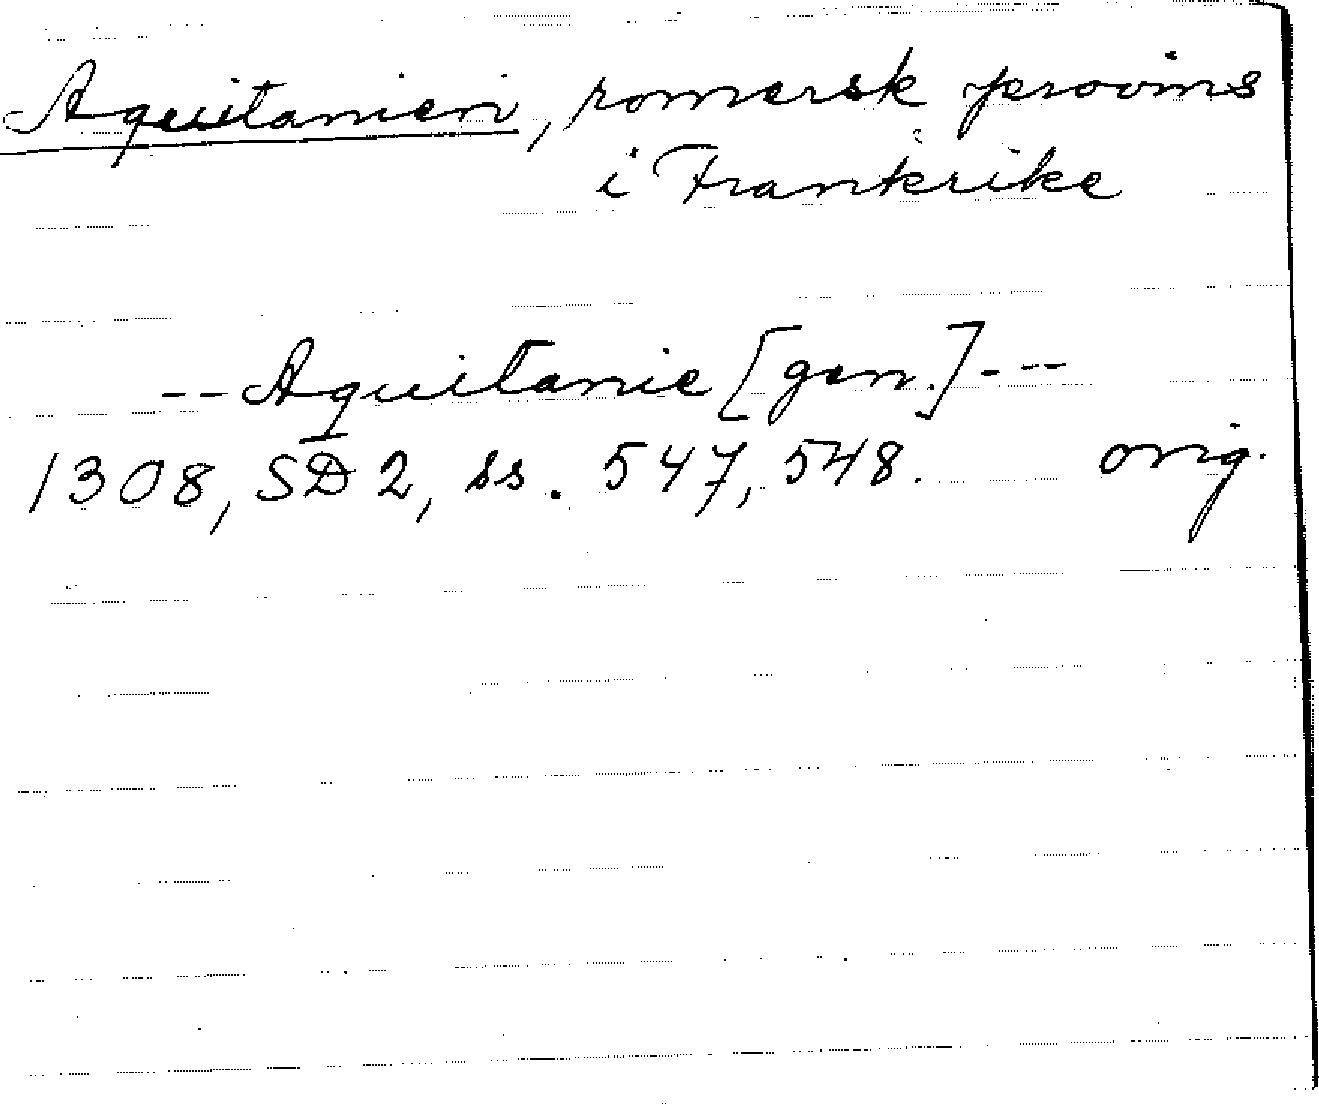 Aquitanien, romersk provins
i Frankrike
-- Aquitanie [gen.] ---
1308, SD 2, ss. 547, 548. orig.